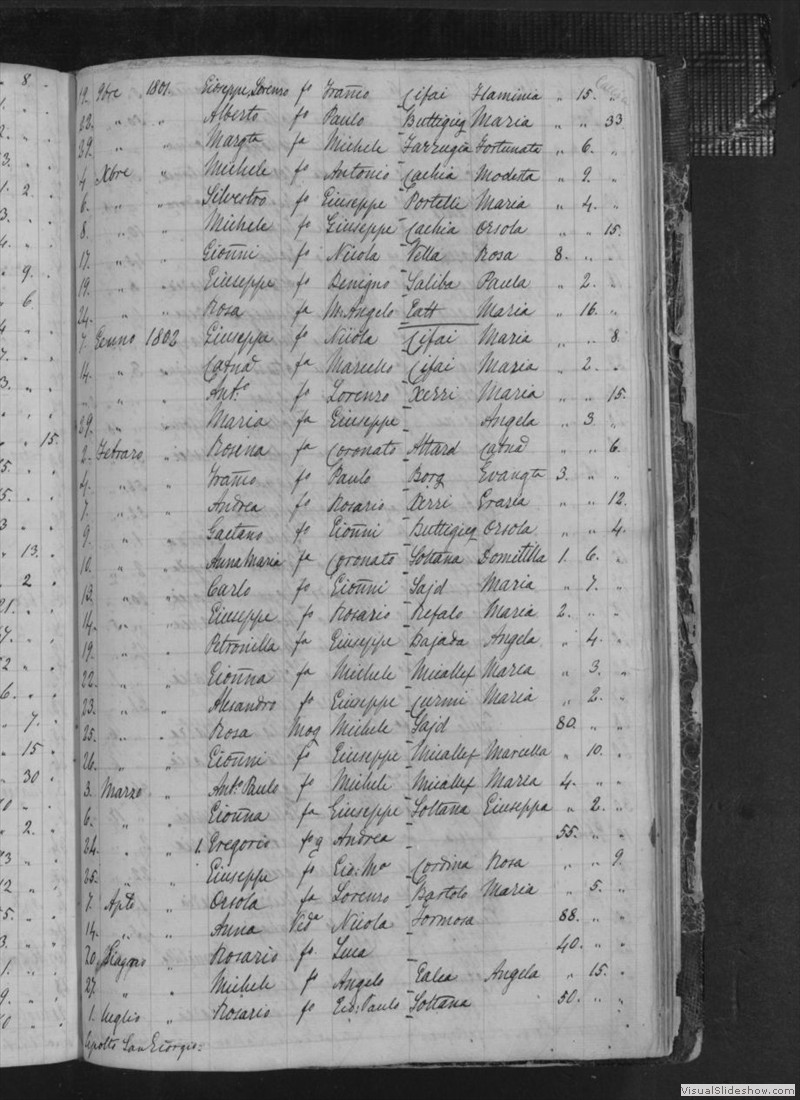 19. 9bre 1801. Giuseppe, Lorenzo fo Franco Cifai Flaminia " 15. "
22. " " Alberto fo Paulo - Buttigieg Maria " " 33
29. " " Margta fa Michele - Farrugia Fortunata " 6. "
4 Xbre " Michele fo Antonio - Cachia Modesta " 9. "
6. " " Silvestro fo Giuseppe - Portelli Maria " 4. "
8. " " Michele fo Giuseppe - Cachia Orsola " " 15.
17. " " Gionni fo Nicola - Vella Rosa 8. " "
19. " " Giuseppe fo Benigno - Saliba Paula " 2. "
24. " " Rosa fa M. Angelo - Tatt Maria " 16. "
7. Genno 1802 Giuseppe fo Nicola - Cifai Maria " " 8.
14. " " Catna fa Marcello - Cifai Maria " 2. "
" " " Anto fo Lorenzo - Xerri Maria " " 15.
29. " " Maria fa Giuseppe - Angela " 3 "
2. Febraro " Rosena fa Coronato - Attard Catna " " 6.
4. " " Franco fo Paulo - Borg Evangta 3. " "
7. " " Andrea fo Rosario - Xerri Grazia " " 12.
9. " " Gaetano fo Gionni - Buttigieg Orsola " " 4.
10. " " Anna Maria fa Coronato - Soltana Domitilla 1. 6. "
13. " " Carlo fo Gionni - Sajd Maria " 7. "
14. " " Giuseppe fo Rosario - Refalo Maria 2. " "
19. " " Petronilla fa Giuseppe - Bajada Angela " 4. "
22. " " Gionna fa Michele - Micallef Maria " 3. "
23. " " Alesandro fo Giuseppe - Curmi Maria " 2. "
25. " " Rosa Mog Michele - Sajd 80. " "
26. " " Gionni fo Giuseppe - Micallef Marcella " 10. "
3. Marzo " Anto Paulo fo Michele - Micallef Maria 4. " "
6. " " Gionna fa Giuseppe - Soltana Giuseppa " 2. "
24. " " 1. Gregorio fo q Andrea - 55. " "
25. " " Giuseppe fo Gio: Ma Cordina Rosa " " 9.
7. Aple " Orsola fa Lorenzo - Bartolo Maria " 5. "
14. " " Anna Veda Nicola - Formosa 88. " "
20. Giugno " Rosario fo Luca - 40. " "
27. " " Michele fo Angelo - Galea Angela " 15. "
1. Luglio " Rosario fo Gio: Paulo - Soltana 50. " "
Sepolto San Giorgio:
VisualSlideshow.com